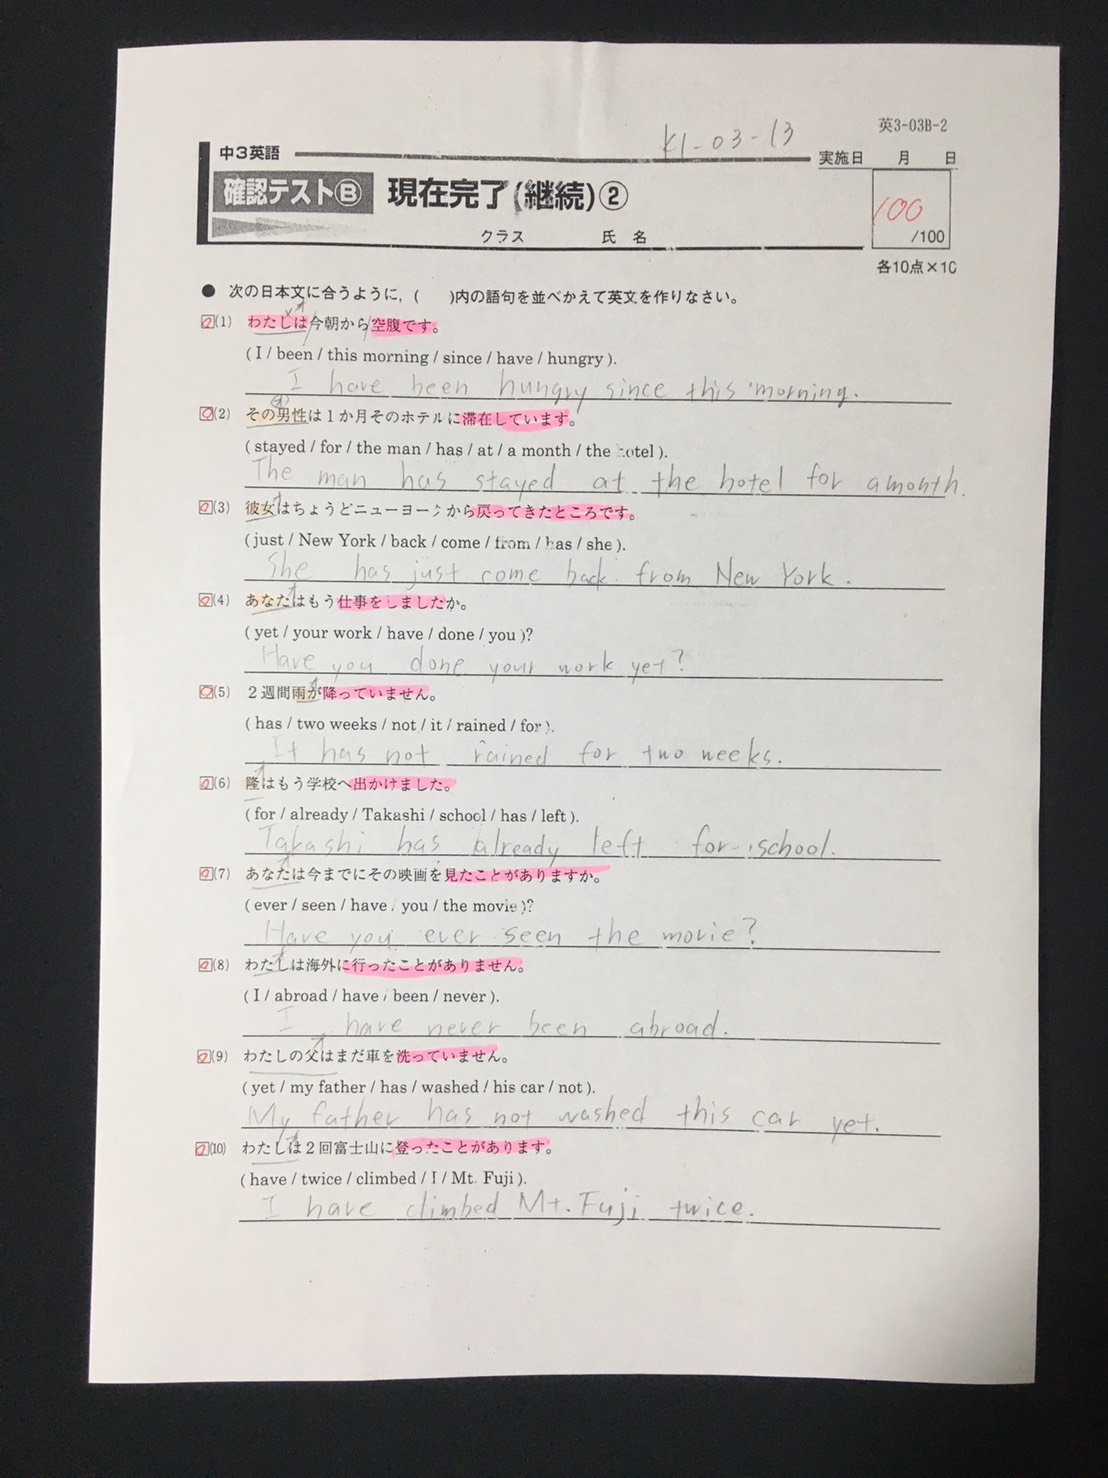 英3-03B-2
k1-03-13
中3英語
実施日 月 日
確認テストⒷ 現在完了(継続)②
100
/100
クラス 氏名
各10点×10
● 次の日本文に合うように,( )内の語句を並べかえて英文を作りなさい。
(1) わたしは今朝から空腹です。
( I / been / this morning / since / have / hungry ).
I have been hungry since this morning.
(2) その男性は1か月そのホテルに滞在しています。
( stayed / for / the man / has / at / a month / the hotel ).
The man has stayed at the hotel for a month.
(3) 彼女はちょうどニューヨークから戻ってきたところです。
( just / New York / back / come / from / has / she ).
She has just come back from New York.
(4) あなたはもう仕事をしましたか。
( yet / your work / have / done / you )?
Have you done your work yet?
(5) 2週間雨が降っていません。
( has / two weeks / not / it / rained / for ).
It has not rained for two weeks.
(6) 隆はもう学校へ出かけました。
( for / already / Takashi / school / has / left ).
Takashi has already left for school.
(7) あなたは今までにその映画を見たことがありますか。
( ever / seen / have / you / the movie )?
Have you ever seen the movie?
(8) わたしは海外に行ったことがありません。
( I / abroad / have / been / never ).
I have never been abroad.
(9) わたしの父はまだ車を洗っていません。
( yet / my father / has / washed / his car / not ).
My father has not washed this car yet.
(10) わたしは2回富士山に登ったことがあります。
( have / twice / climbed / I / Mt. Fuji ).
I have climbed Mt. Fuji twice.